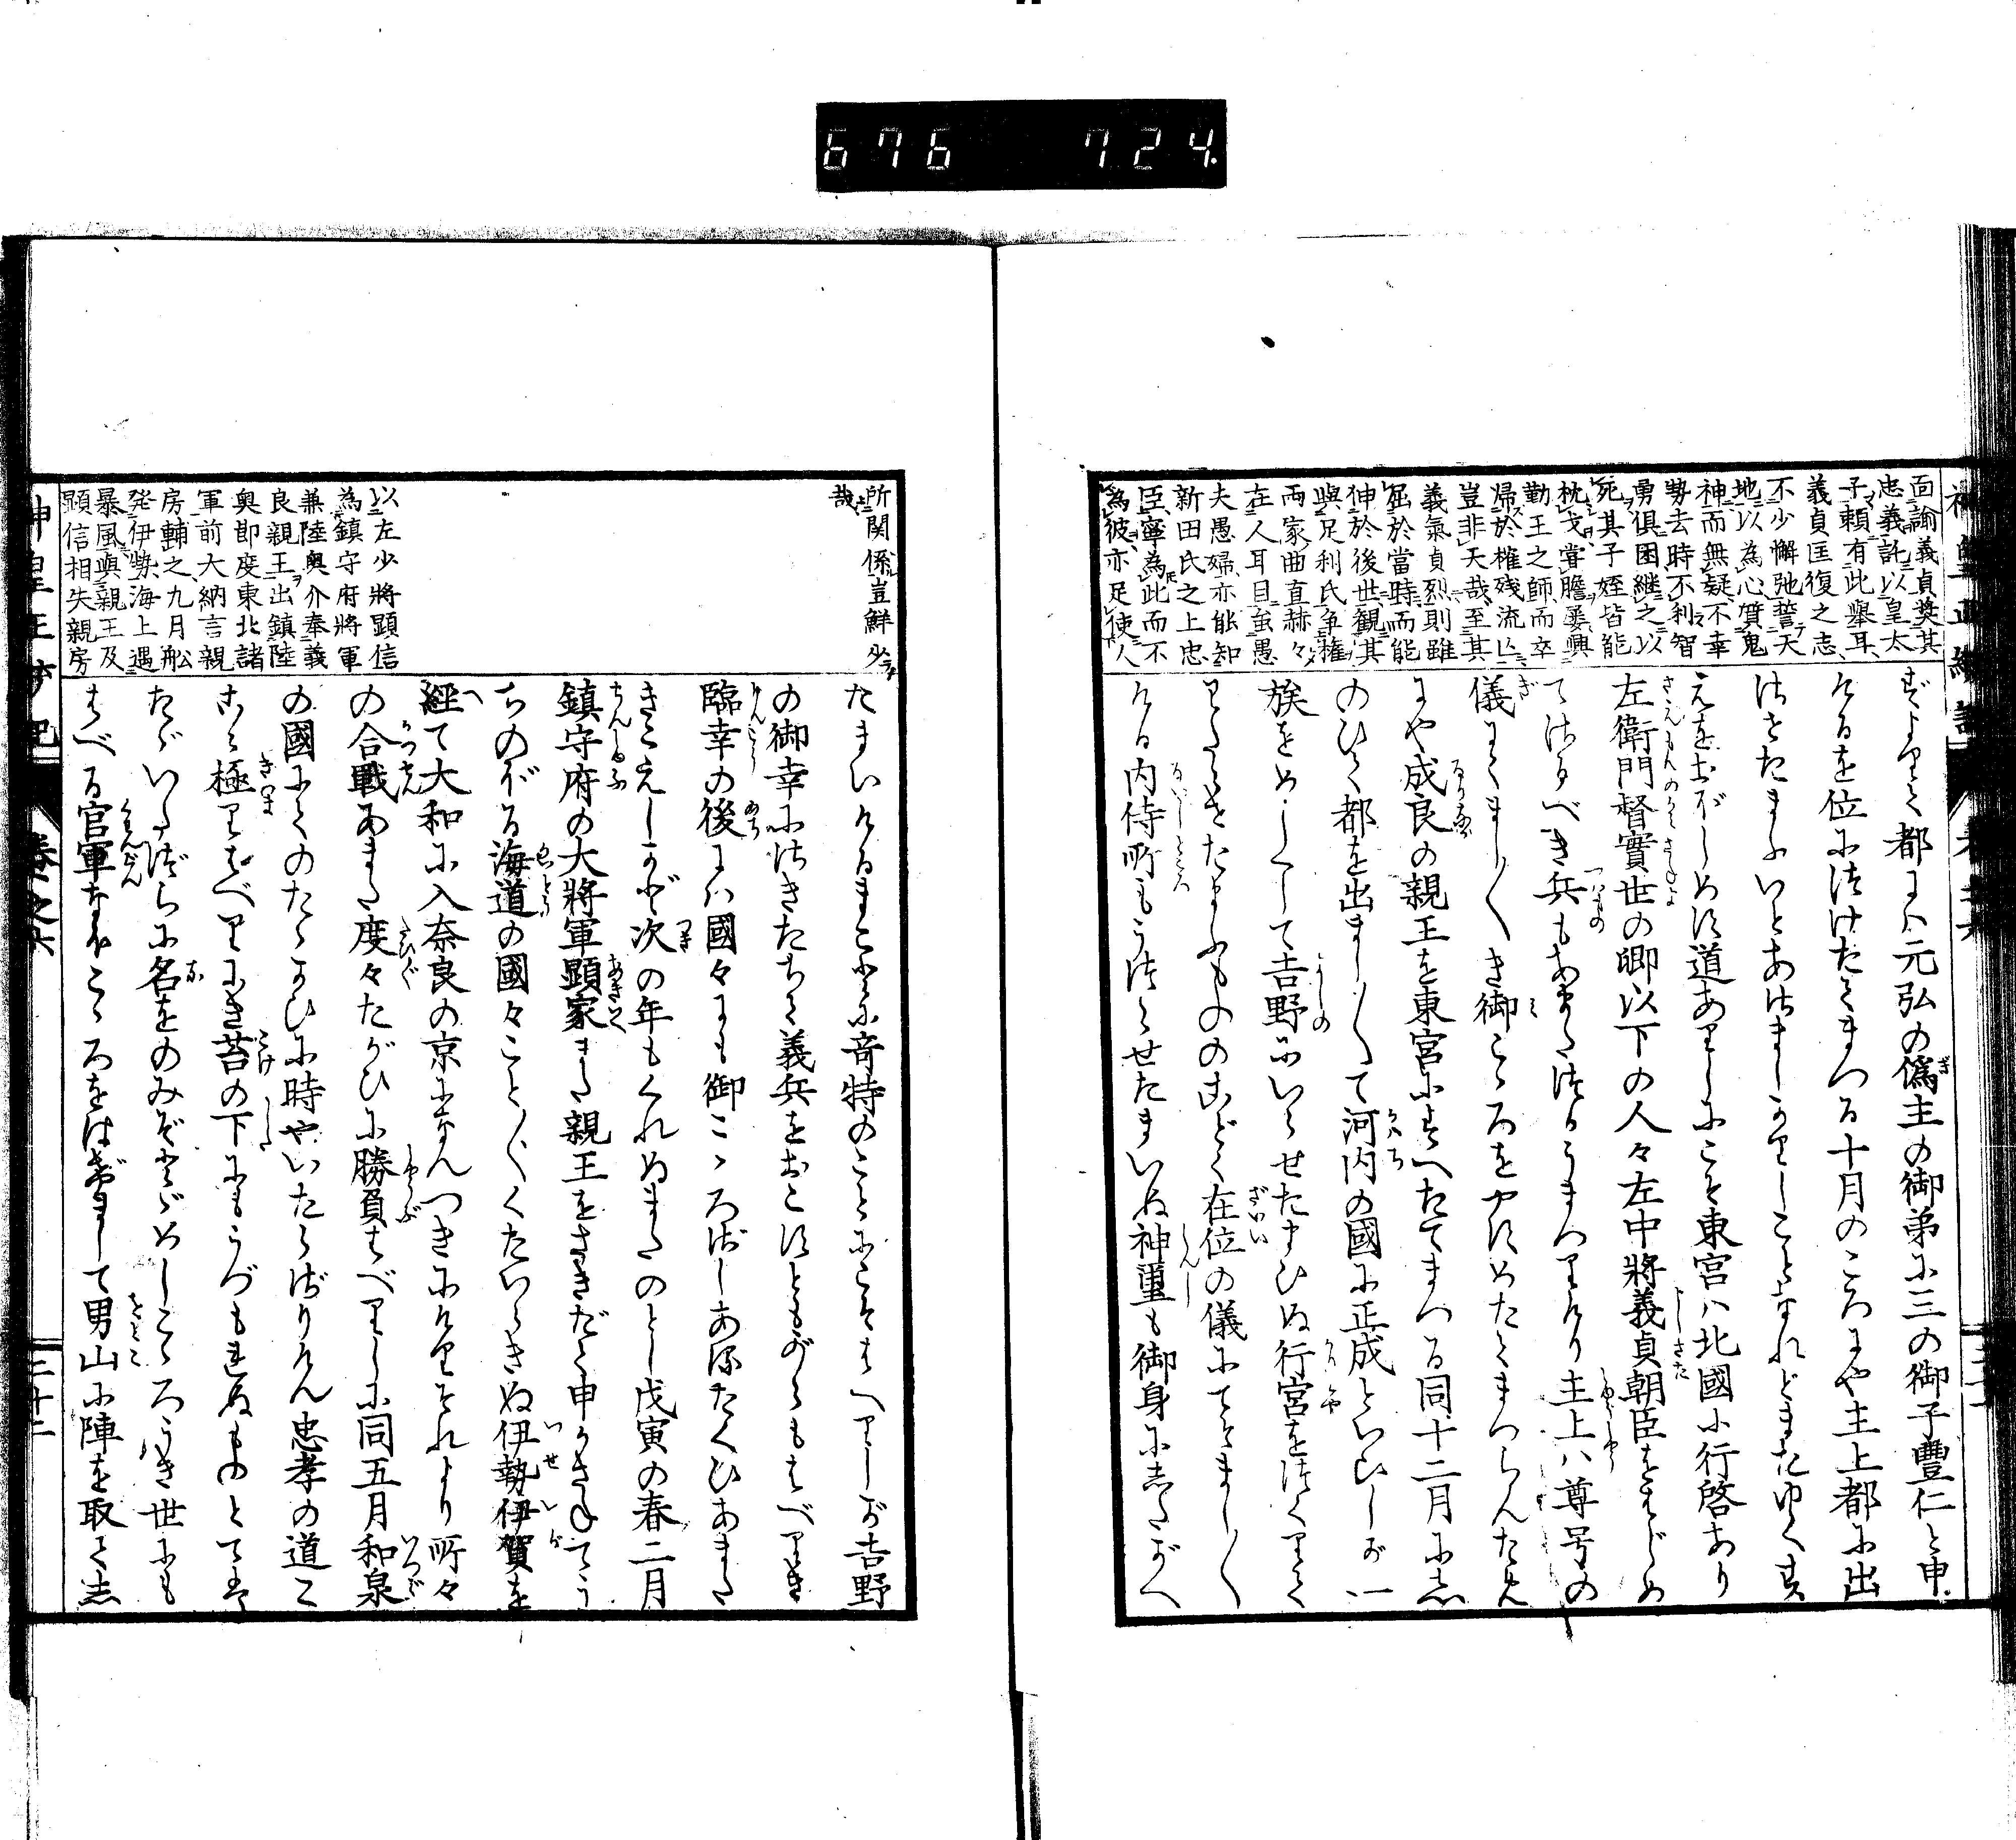 676 724
面諭義貞奨其
忠義託以皇太
子頼有此擧耳
義貞匡復之志
不少懈弛誓天
地以為心質鬼
神而無疑不幸
勢去時不利智
勇倶困継之以
死其子姪皆能
枕戈甞膽屡興
勤王之師而卒
帰於摧残流亡
豈非天哉至其
義氣貞烈則雖
屈於當時而能
伸於後世観其
與足利氏争権
両家曲直赫々
在人耳目虽愚
夫愚婦亦能知
新田氏之上忠
臣寧為此而不
為彼亦足使人
都には元弘の偽主の御弟に三の御子豐仁と申
けるを位につけたてまつる十月のころにや主上都に出
させたまふいとあさましかりしことなれどまたゆくす
ゑをおぼしめす道ありしにこそ東宮ハ北國に行啓あり
左衛門督實世の卿以下の人々左中將義貞朝臣をはじめ
てさるべき兵もあまたつかうまつりけり主上ハ尊号の
儀にてましましき御こゝろをやすめたてまつらんため
にや成良の親王を東宮にすへたてまつる同十二月に志
のびて都を出ましまして河内の國に正成といひしが一
族をめしぐして吉野にいらせたまひぬ行宮をつくりて
わたらせたまふもとのごとく在位の儀にてぞましまし
ける内侍所もうつらせたまいぬ神璽も御身に志たがへ
所関係豈鮮少
哉
以左少將顕信
為鎮守府將軍
兼陸奥介奉義
良親王出鎮陸
奥即度東北諸
軍前大納言親
房輔之九月舩
発伊勢海上遇
暴風與親王及
顕信相失親房
たまいけるまことに奇特のことにこそはべりしが吉野
の御幸にさきたちて義兵をおこすともがらもはべりき
臨幸の後には國々にも御こゝろざしあるたぐひあまた
きこえしかど次の年もくれぬまたのとし戊寅の春二月
鎮守府の大將軍顕家また親王をさきだて申かさねてう
ちのぼる海道の國々ことごとくたいらきぬ伊勢伊賀を
経て大和に入奈良の京になんつきにけりそれより所々
の合戦あまた度々たがひに勝負はべりしに同五月和泉
の國にてのたゝかひに時やいたらざりけん忠孝の道こ
こに極りはべりにき苔の下にもうづもれぬものとては
たゞいたづらに名をのみぞとゞめしこゝろうき世にも
はべる官軍なほこゝろをはげまして男山に陣を取て志
神皇正統記
卷之六
三十二